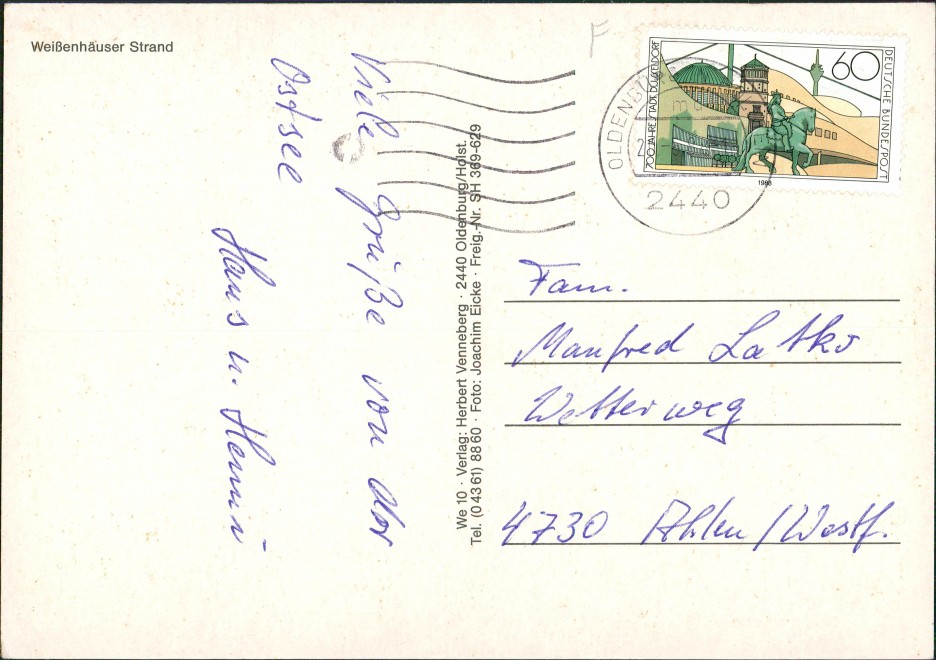 Weißenhäuser Strand
Viele Grüße von der
Ostsee
Hans u. Henni
We 10 · Verlag: Herbert Venneberg · 2440 Oldenburg/Holst.
Tel. (0 43 61) 88 60 · Foto: Joachim Eicke · Freig.-Nr. SH 369-629
F
700 JAHRE STADT DÜSSELDORF
60
DEUTSCHE BUNDESPOST
1988
OLDENBURG
2440
Fam.
Manfred Latko
Wetterweg
4730 Ahlen/Westf.